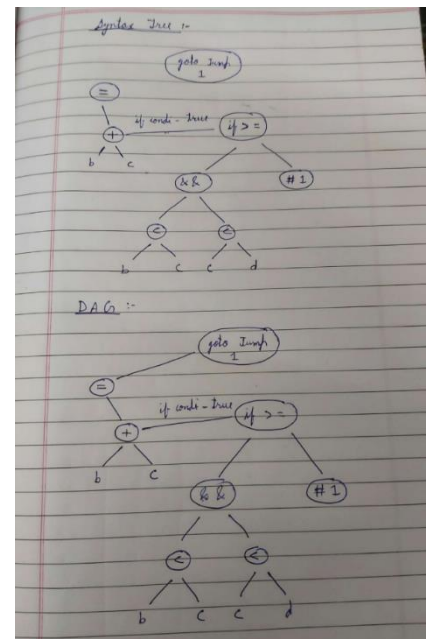 Syntax Tree :-
goto Jump
1
=
+ if condi - true if >=
b c
&& #1
< <
b c c d
DAG :-
goto Jump
1
=
+ if condi - true if >=
b c
&& #1
< <
b c c d